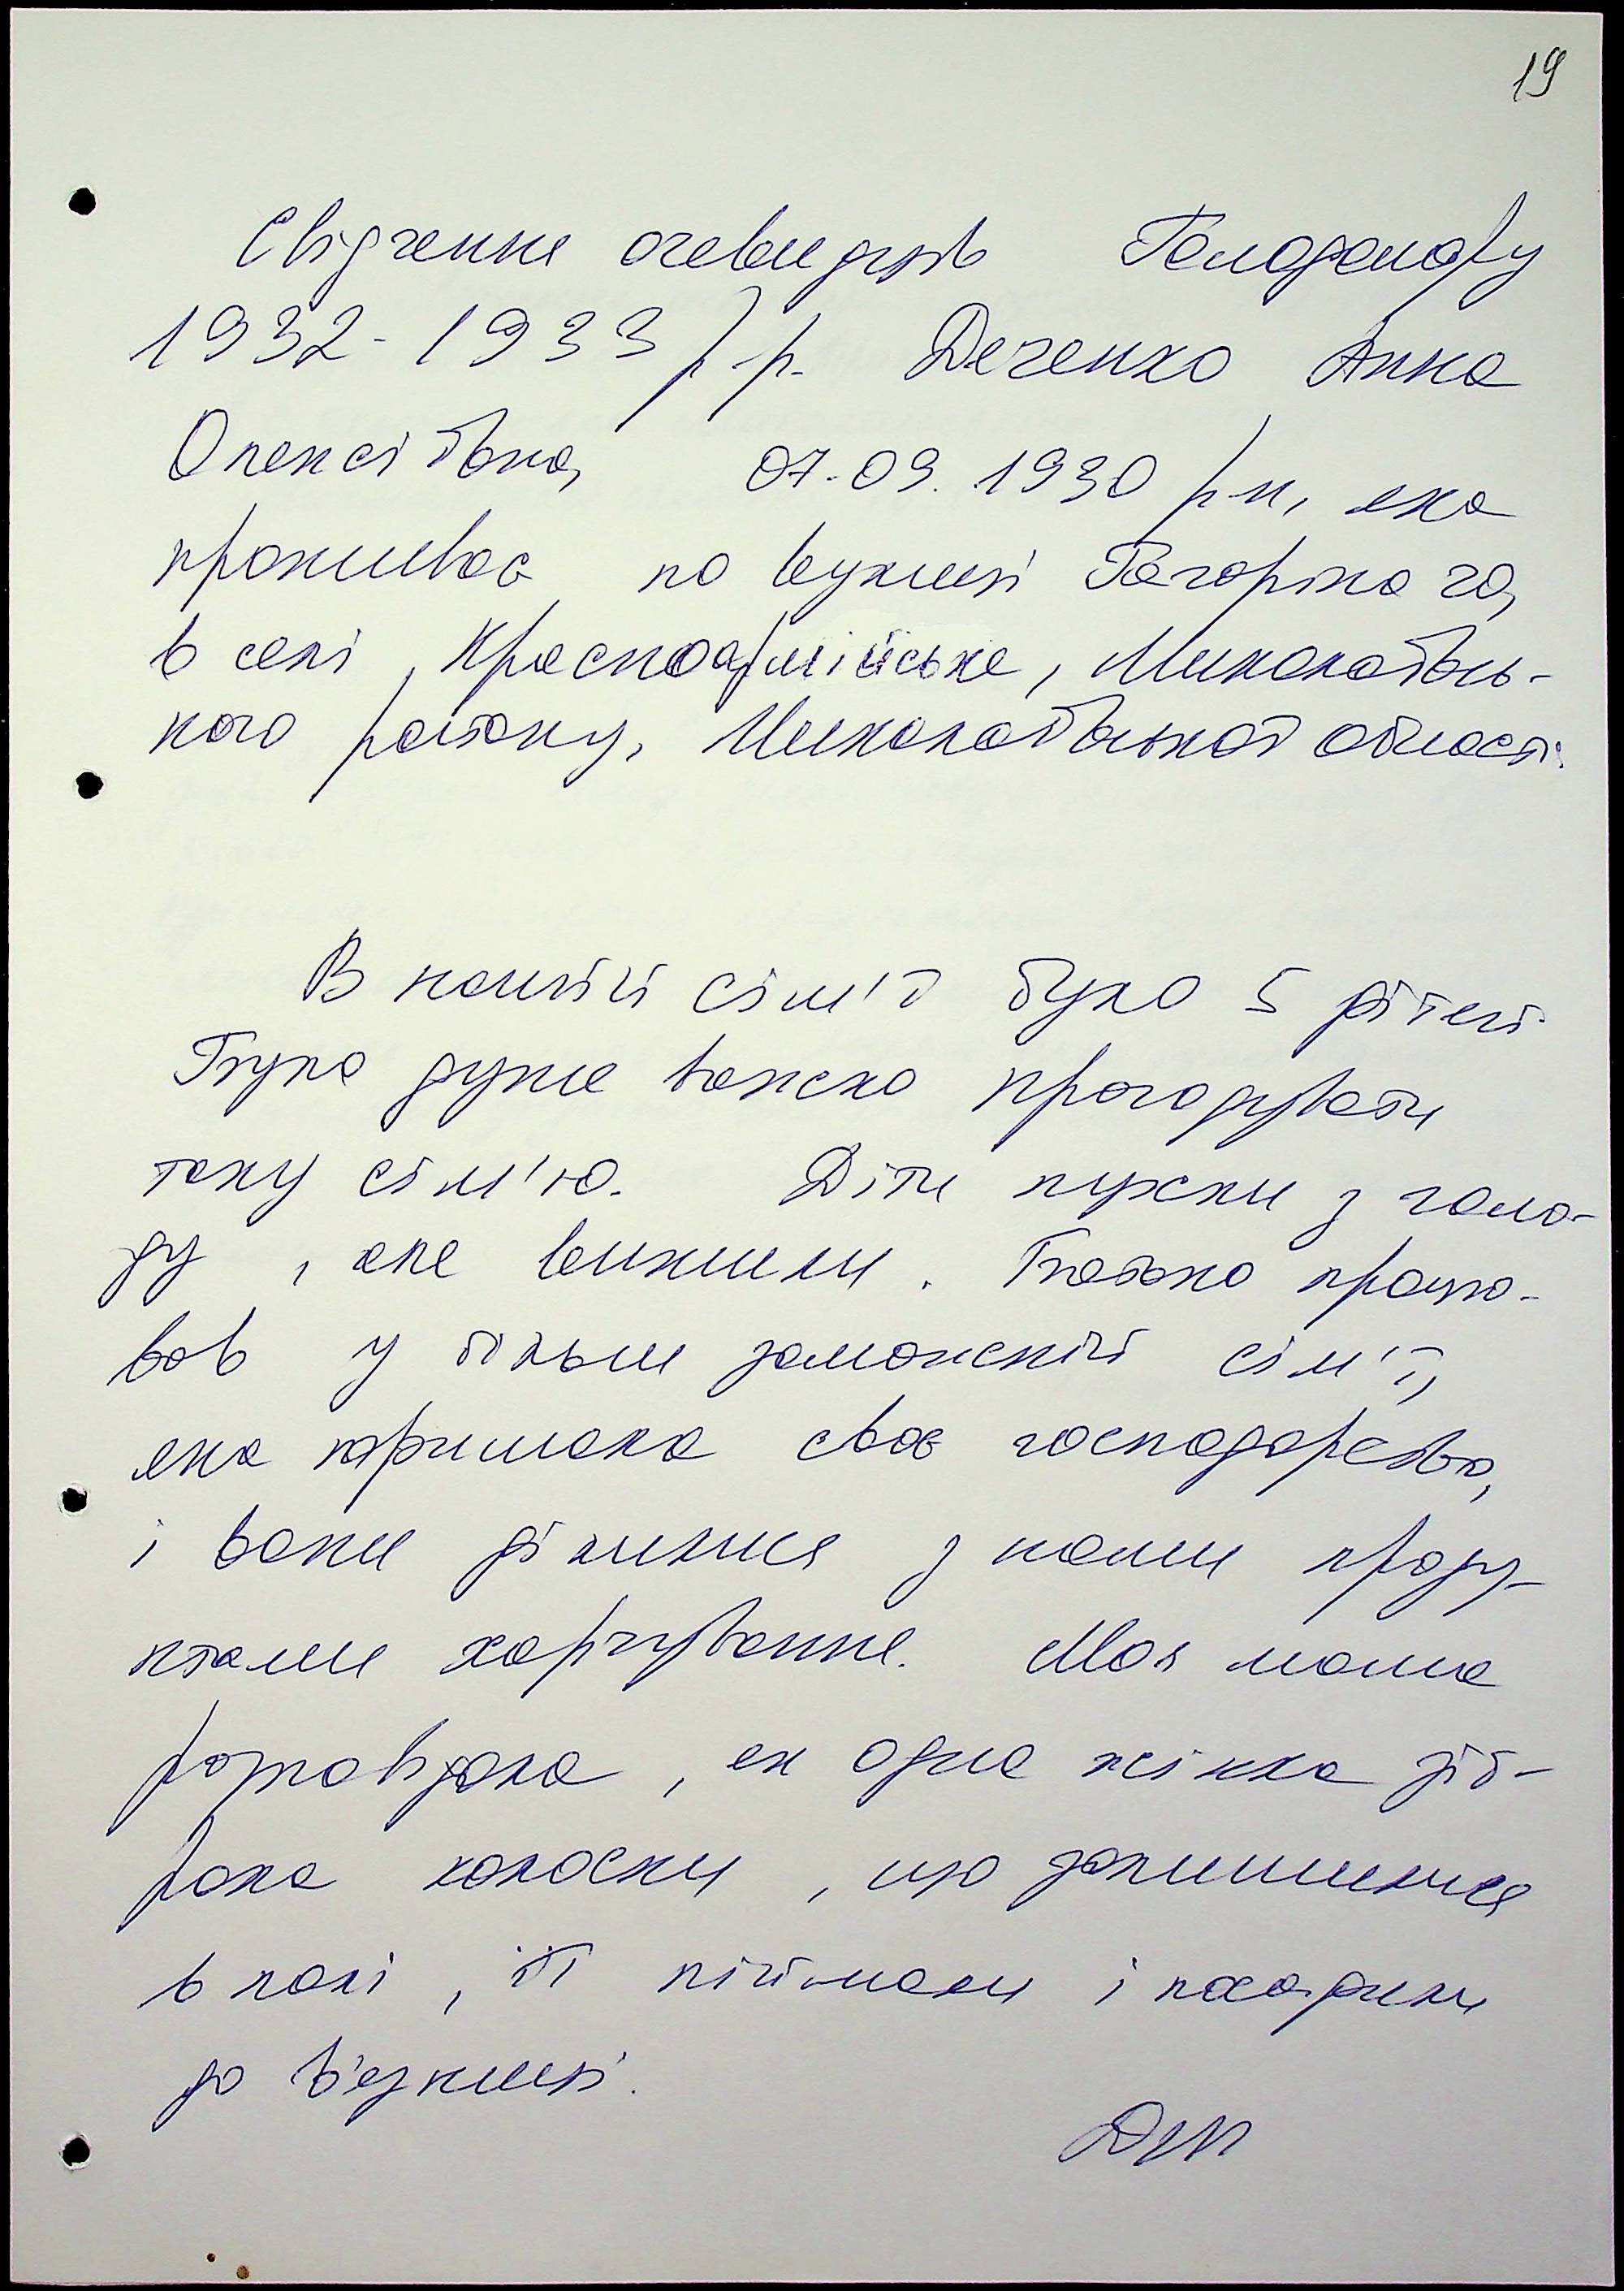 19
Свідчення очевидців Голодомору
1932-1933 р.р. Деченко Анна
Олексіївна, 07.09.1930 р.н, яка
проживає по вулиці Гагаріна 20,
в селі, Красноармійське, Миколаївсь-
кого району, Миколаївської області.
В нашій сім'ї було 5 дітей.
Було дуже важко прогодувати
таку сім'ю. Діти пухли з голо-
ду, але вижили. Батько працю-
вав у більш заможній сім'ї,
яка тримала своє господарство,
і вони ділилися з нами проду-
ктами харчування. Моя мама
розповідала, як одна жінка зіб-
рала колоски, що залишилися
в полі, її піймали і посадили
до в'язниці.